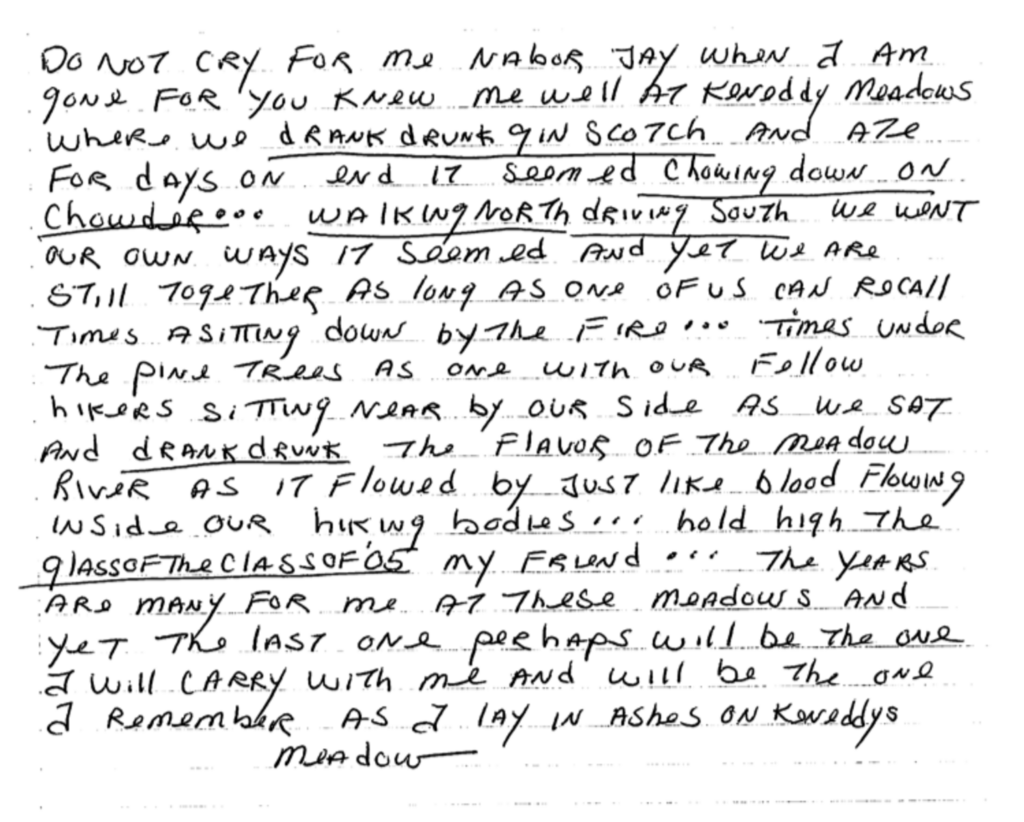 Do NOT CRY FOR me NABOR JAY when I Am
gone FOR you KNew me well AT Keneddy Meadows
where we dRANK dRUNK gIN ScoTch AND ATe
FOR dAYS ON eNd IT seemed chowing down ON
Chowder... wALKINg NORTh dRIVINg SouTh we weNT
OUR OWN WAYS IT seemed AND yeT we ARe
STIll TOgeTheR AS long AS ONe OF US CAN ReCAll
Times ASITTINg down by The FIRe ... Times UNdeR
The pINe TRees AS ONe WITh OUR Fellow
hIKERS SITTINg NeAR by OUR Side AS we SAT
AND dRANK dRUNK The FlAVOR OF The meAdow
RIVeR AS IT Flowed by JUST lIKe blood Flowing
INSide OUR hIKINg bodIes ... hold high The
glASSOFTheClASSOF'05 my FRIeNd ... The YeARS
ARe mANY FOR me AT These meAdows AND
yeT The lAST ONe peRhAps will be The ONe
I will CARRY WITh me AND will be The ONe
I RemembeR AS I lAY IN AShes ON Keneddys
meAdow—